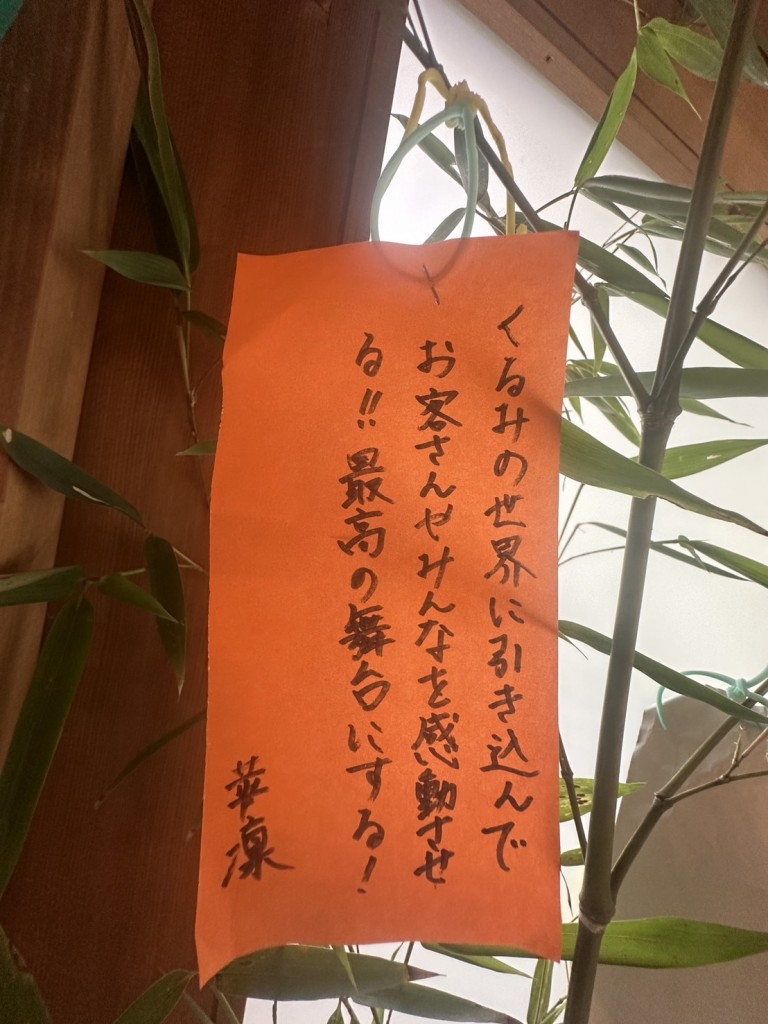 くるみの世界に引き込んで
お客さんやみんなを感動させ
る!!最高の舞台にする!
華凜